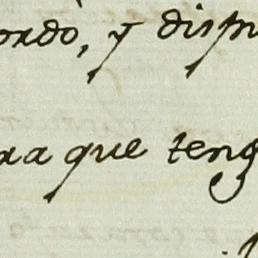 ordò, y disp
ra que teng